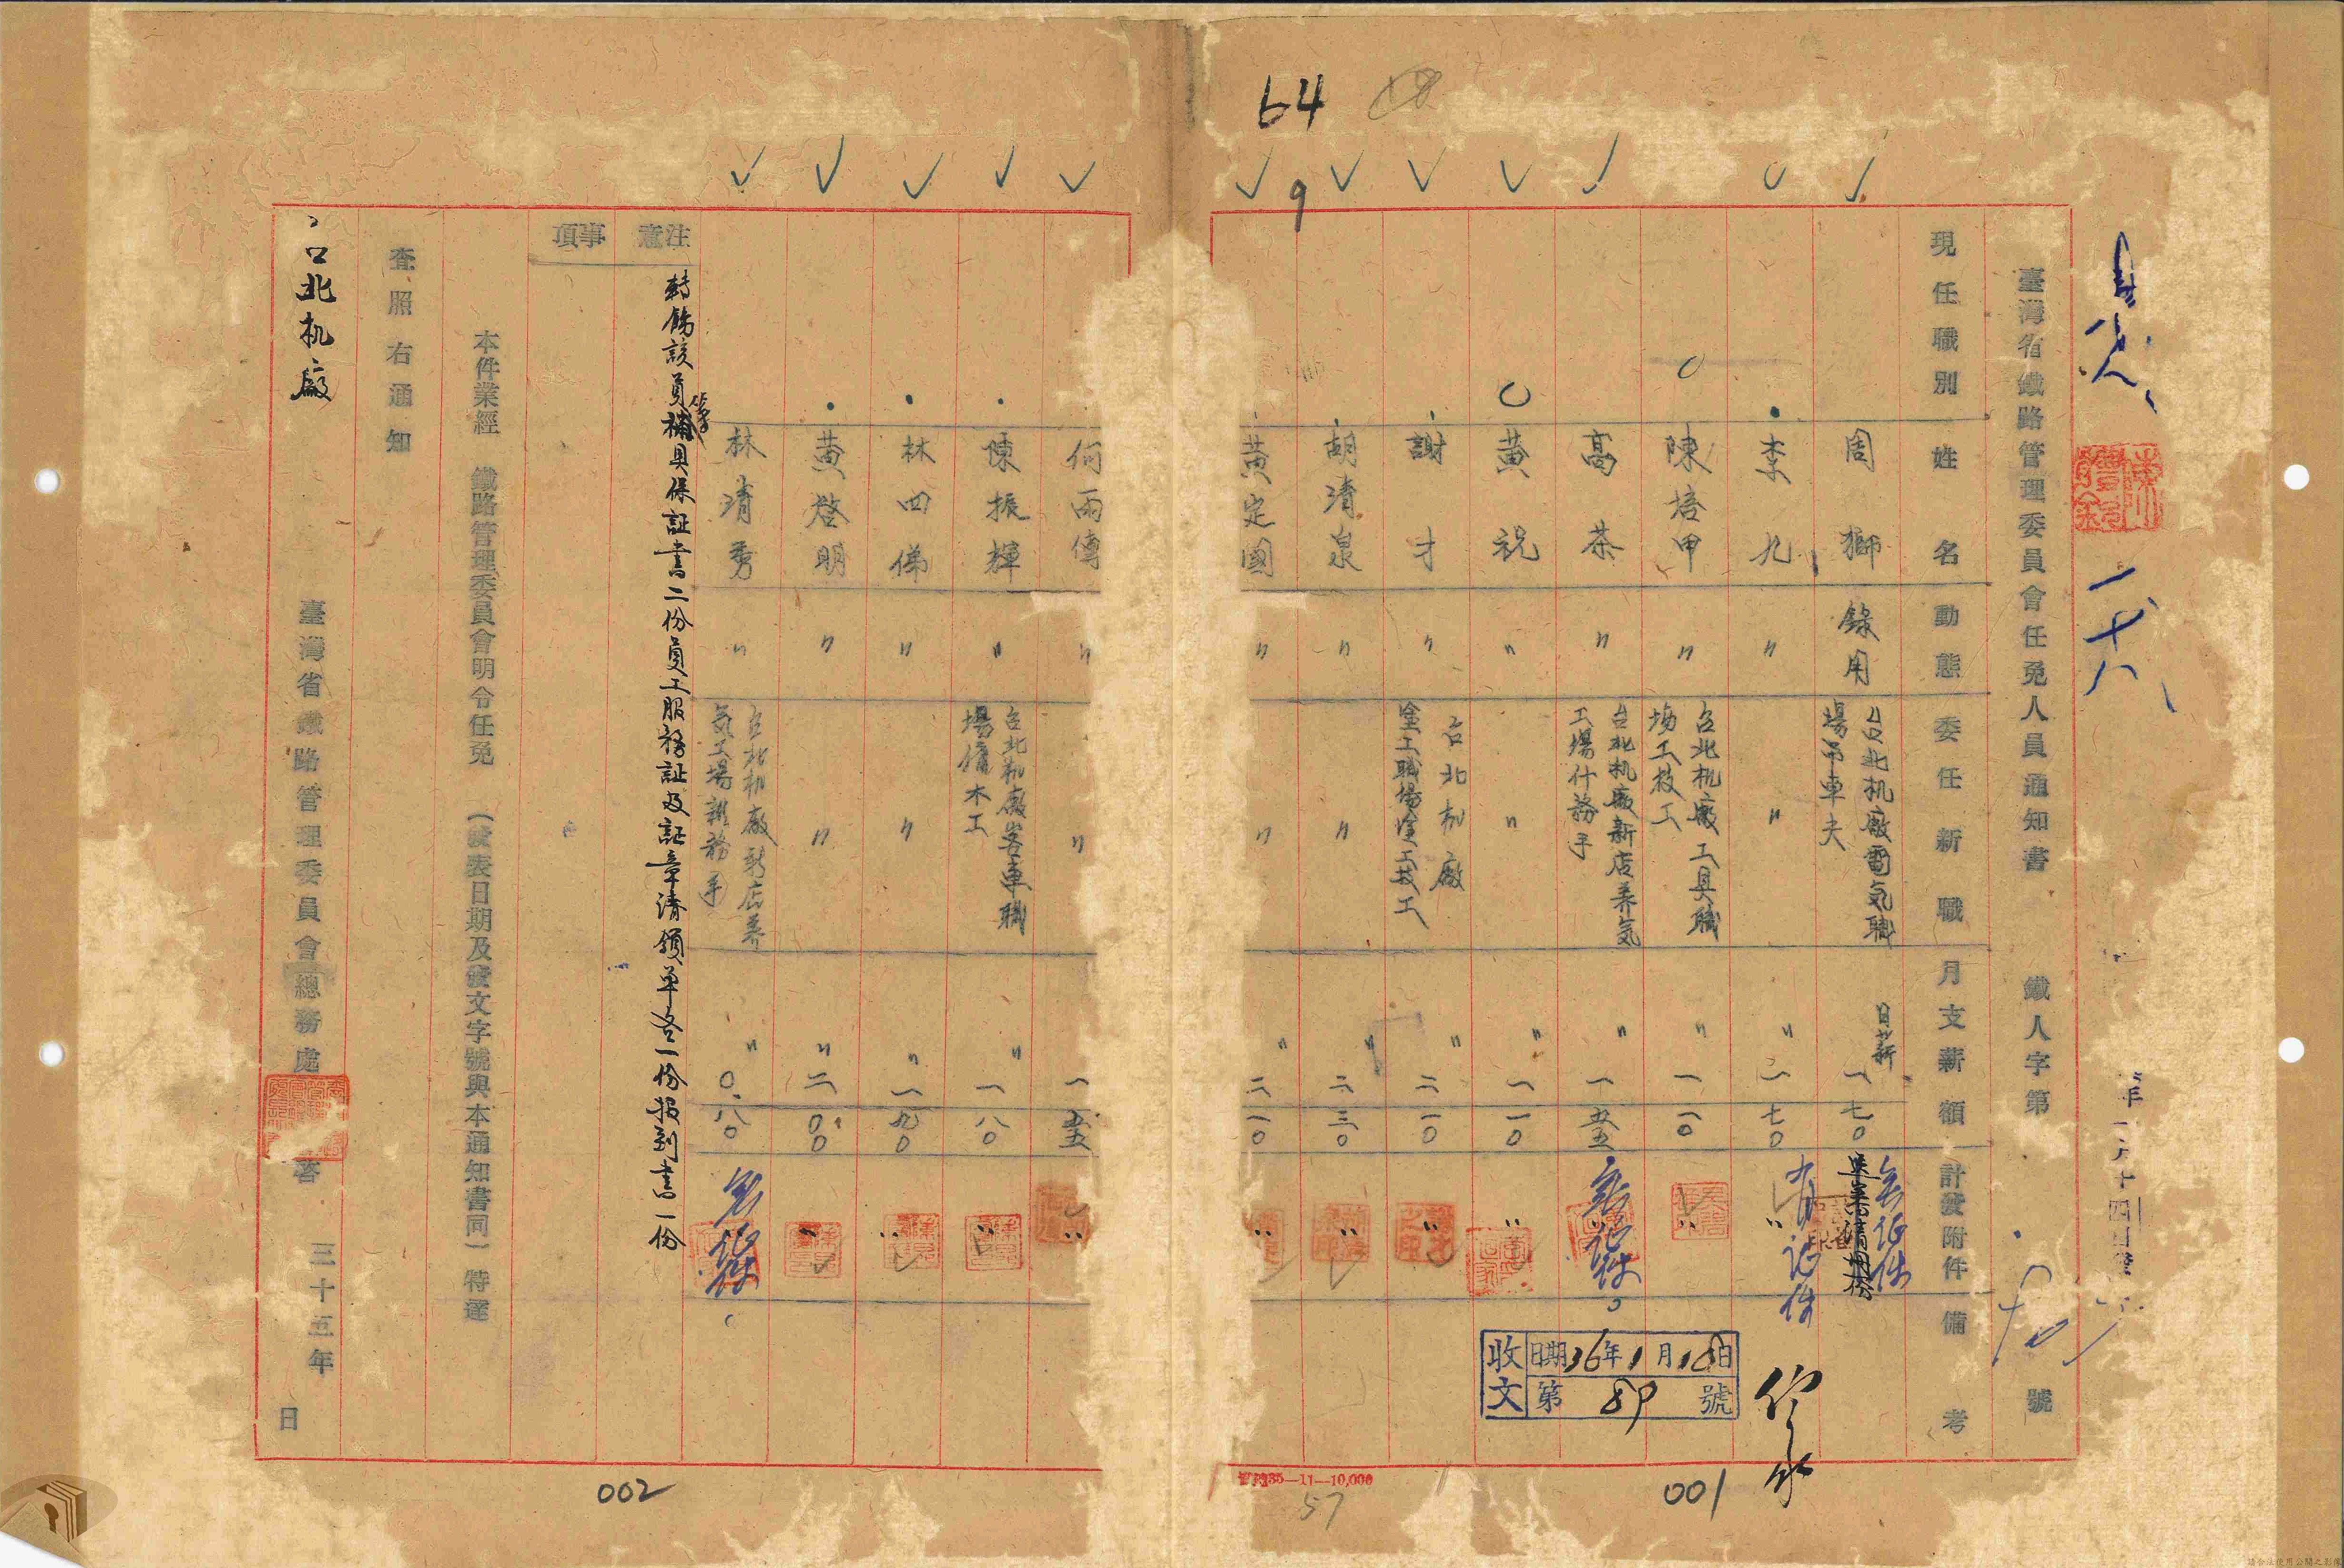 64
9
臺灣省鐵路管理委員會任免人員通知書 鐵人字第 號
現任職別 姓名 動態 委任新職 月支薪額 計發附件 備考
周獅 錄用 台北机廠電気職場吊車夫 日薪 一七〇 無証件
李九 〃 〃 〃 一七〇 有証件
陳培甲 〃 台北机廠工具職場工技工 〃 一一〇 〃
高茶 〃 台北机廠新店养気工場什務手 〃 一五五 無証件
黄祝 〃 〃 〃 一一〇 〃
謝才 〃 台北机廠塗工職場塗工技工 〃 二一〇 〃
胡清泉 〃 〃 〃 二三〇 〃
黄定國 〃 〃 〃 二一〇 〃
收文 日期36年1月18日
第89號
001
57
35—11—10,000
何雨傳 〃 〃 一五五 〃
陳振輝 〃 台北机廠客車職場備木工 〃 一八〇 〃
林四俤 〃 〃 〃 一九〇 〃
黄啓明 〃 〃 〃 二〇〇 〃
林清秀 〃 台北机廠新店养気工場雜務手 〃 〇八〇 無証件
注意事項
轉飭該員等補具保証書二份員工服務証及証章請領单各一份报到書一份
本件業經 鐵路管理委員會明令任免 (發表日期及發文字號與本通知書同)特達
查照右通知
台北机廠
臺灣省鐵路管理委員會總務處 啓 三十五年 日
002